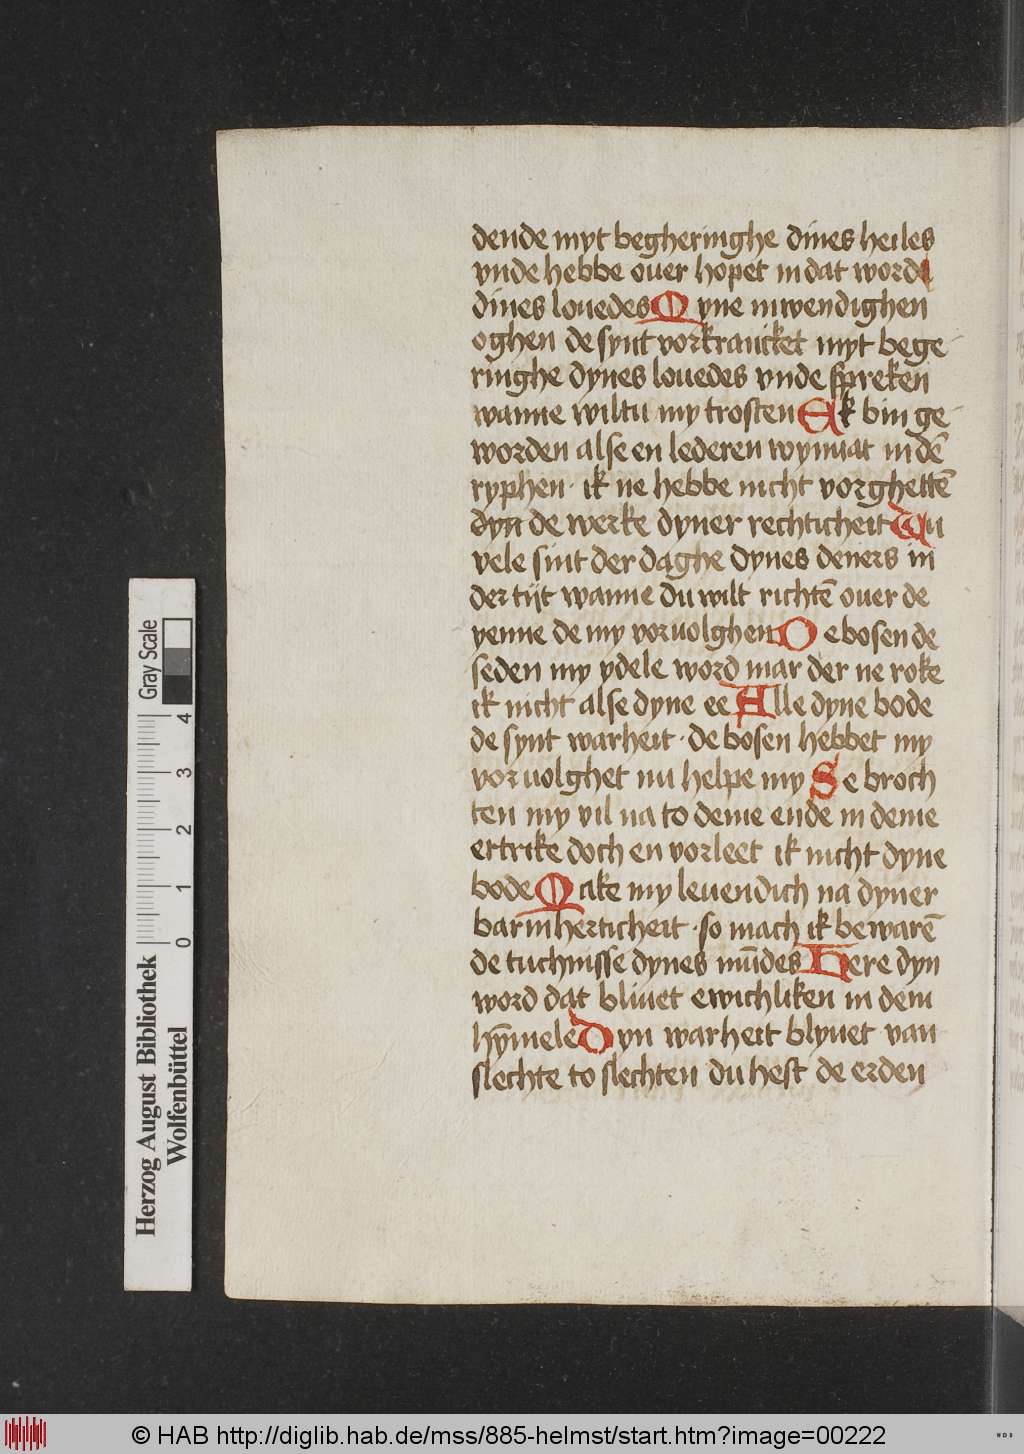 dende myt begheringhe dines heiles
vnde hebbe ouer hopet in dat worde
dines louedes Myne inwendighen
oghen de synt vorkrancket myt bege-
ringhe dynes louedes vnde spreken
wanne wiltu my trosten Ek bin ge-
worden alse en lederen wynuat in dē
ryphen · ik ne hebbe nicht vorghettē
dyn de werke dyner rechticheit Wu
vele sint der daghe dynes deners in
der tijt wanne du wilt richtē ouer de
yenne de my voruolghen De bosen de
seden my ydele word mar der ne roke
ik nicht alse dyne ee Alle dyne bode
de synt warheit · de bosen hebbet my
voruolghet nu helpe my Se broch
ten my vil na to deme ende in deme
ertrike doch en vorleet ik nicht dyne
bode Make my leuendich na dyner
barmherticheit · so mach ik bewarē
de tuchnisse dynes mūdes Here dyn
word dat bliuet ewichliken in dem
hȳmele Dyn warheit blyuet van
slechte to slechten du hest de erden
Gray Scale
4
3
2
1
0
Herzog August Bibliothek
Wolfenbüttel
© HAB http://diglib.hab.de/mss/885-helmst/start.htm?image=00222
WDB